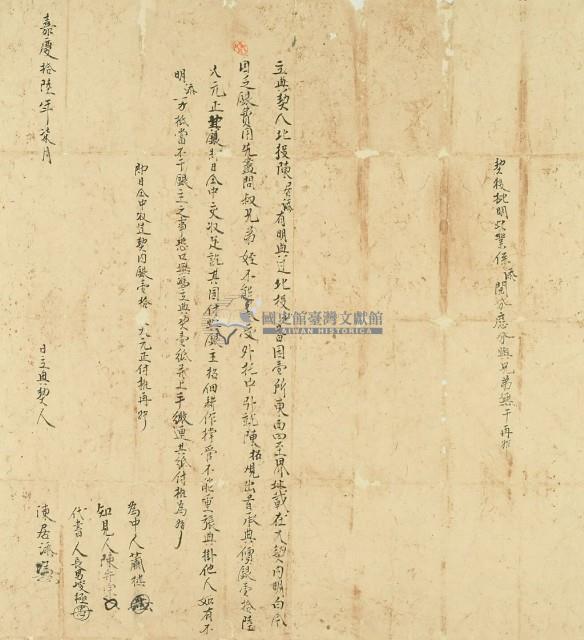 契後批明此業係添開分應分與兄弟無干再炤
立典契人北投陳居添有明典過北投番田壹所東西四至界址載在大契內明白
因乏銀費用先盡問叔兄弟姪不能承受外托中引就陳招觀出首承典價銀壹拾陸
大元正其銀即日仝中交收足訖其田付與銀主招佃耕作掌管不能重張典掛他人如有不
明添一力抵當不干銀主之事恐口無憑立典契壹紙并上手繳連共紙付執為炤
即日仝中收過契內銀壹拾大元正付執再炤
為中人蕭
知見人陳
代書人長男
嘉慶拾陸年柒月日立典契人陳居添
國史館臺灣文獻館
TAIWAN HISTORICA